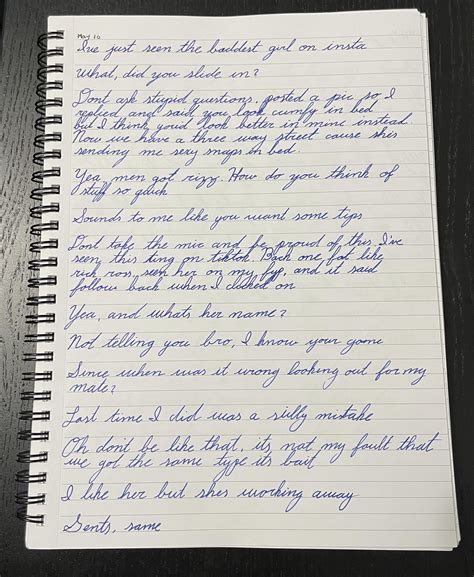 May 10
I've just seen the baddest girl on insta
What, did you slide in?
Dont ask stupid questions, posted a pic so I
replied and said you look comfy in bed
but I think youd look better in mine instead
Now we have a three way street cause shes
sending me sexy snaps in bed
Yea, men got rizz. How do you think of
stuff so quick
Sounds to me like you want some tips
Dont take the mic and be proud of this, I've
seen this ting on tiktok. Back one fat like
rick ross, seen her on my fyp, and it said
follow back when I clocked on
Yea, and whats her name?
Not telling you bro, I know your game
Since when was it wrong looking out for my
mate?
Last time I did was a silly mistake
Oh dont be like that, its not my fault that
we got the same type its bait
I like her but shes working away
Gents, same